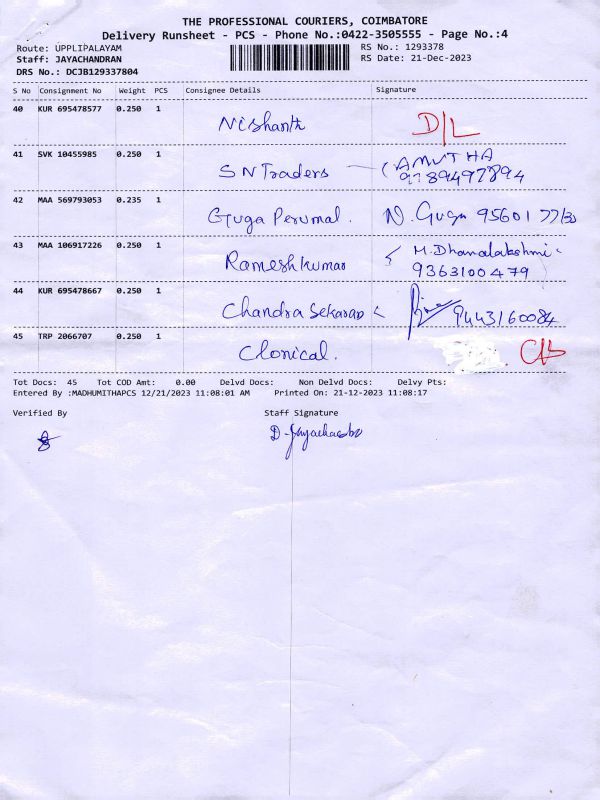 THE PROFESSIONAL COURIERS, COIMBATORE
Delivery Runsheet - PCS - Phone No.:0422-3505555 - Page No.:4
Route: UPPLIPALAYAM RS No.: 1293378
Staff: JAYACHANDRAN RS Date: 21-Dec-2023
DRS No.: DCJB129337804
S No Consignment No Weight PCS Consignee Details Signature
40 KUR 695478577 0.250 1 Nishanth D/L
41 SVK 10455985 0.250 1 SN Traders AMUTHA
9789497894
42 MAA 569793053 0.235 1 Guga Perumal. N. Guga 95601 77/30
43 MAA 106917226 0.250 1 Ramesh kumar M. Dhanalakshmi
9363100479
44 KUR 695478667 0.250 1 Chandra Sekaran 9443160084
45 TRP 2066707 0.250 1 Clonical.
Tot Docs: 45 Tot COD Amt: 0.00 Delvd Docs: Non Delvd Docs: Delvy Pts:
Entered By :MADHUMITHAPCS 12/21/2023 11:08:01 AM Printed On: 21-12-2023 11:08:17
Verified By Staff Signature